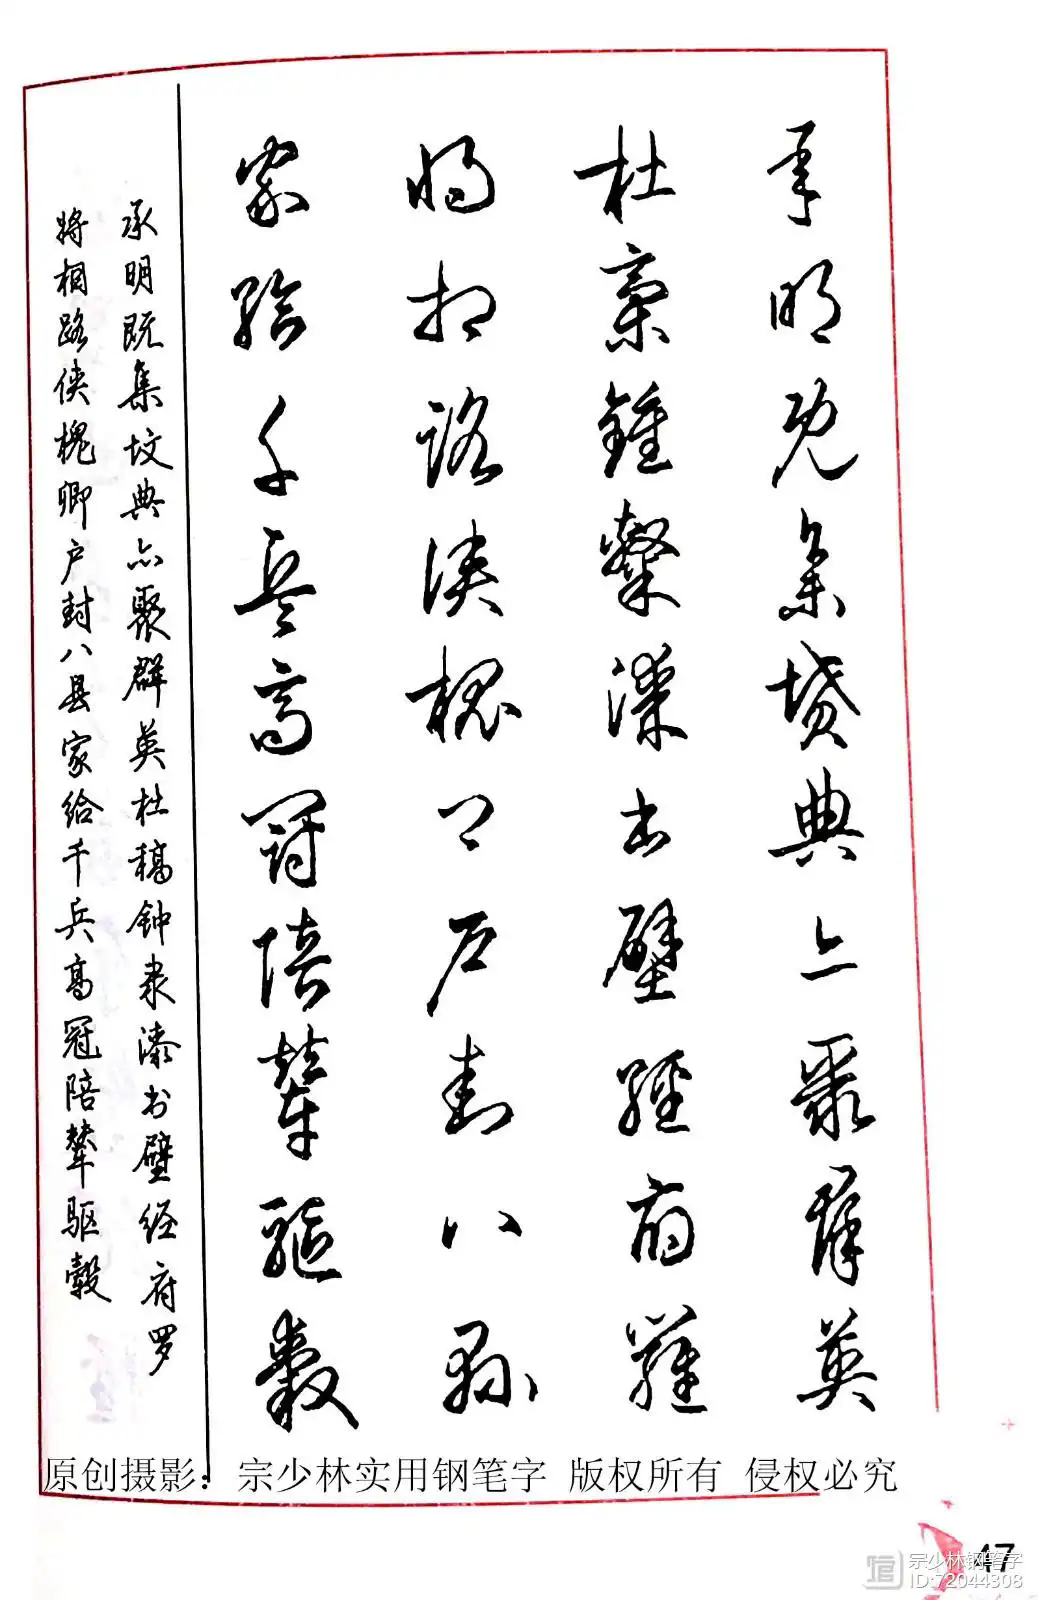 承明既集墳典亦聚群英
杜稾鍾隸漆書壁經府羅
將相路俠槐卿户封八縣
家給千兵高冠陪輦驅轂
承明既集坟典亦聚群英杜稿钟隶漆书壁经府罗
将相路侠槐卿户封八县家给千兵高冠陪辇驱毂
原创摄影：宗少林实用钢笔字 版权所有 侵权必究
47
宗少林钢笔字
ID:72044308